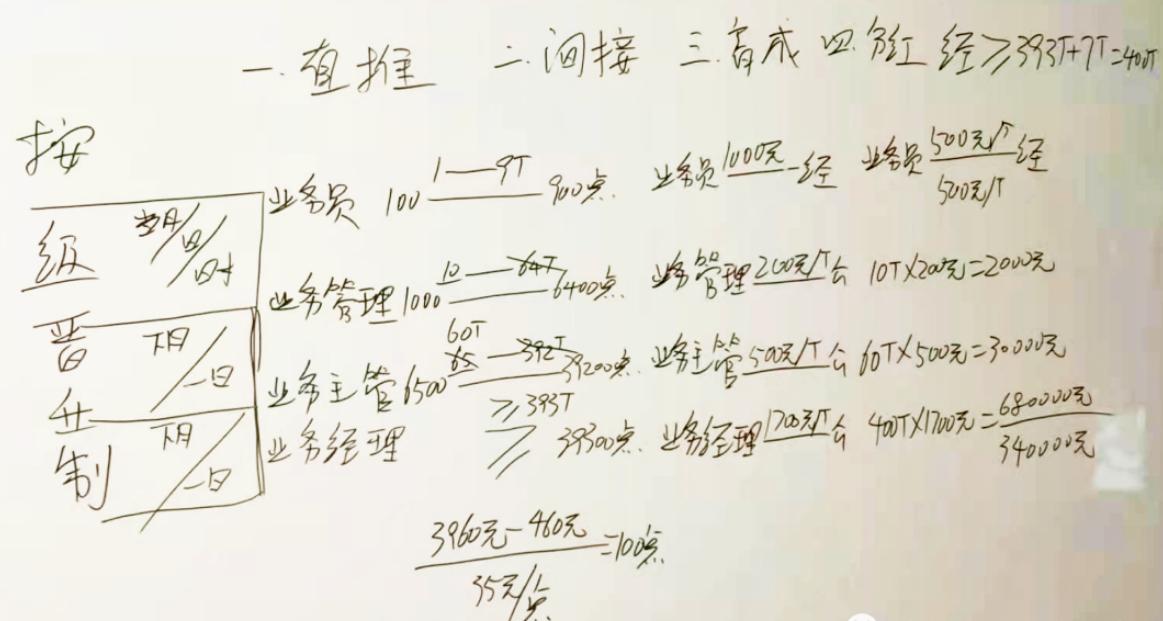 一.直推 二.间接 三.育成 四.分红 经≥393T+7T=400T
按
级 当月/日/时
晋 下月/一日
升
制 下月/一日
业务员 100 1——9T 900点. 业务员 1000元 经 业务员 500元/T 经 500元/T
业务管理 1000 10——64T 6400点. 业务管理 200元/T 公 10T×200元=2000元
60T
业务主管 6500 65——392T 39200点. 业务主管 500元/T 公 60T×500元=30000元
业务经理 ≥393T ≥39300点. 业务经理 1700元/T 公 400T×1700元=680000元
340000元
3960元-460元
35元/点
=100点